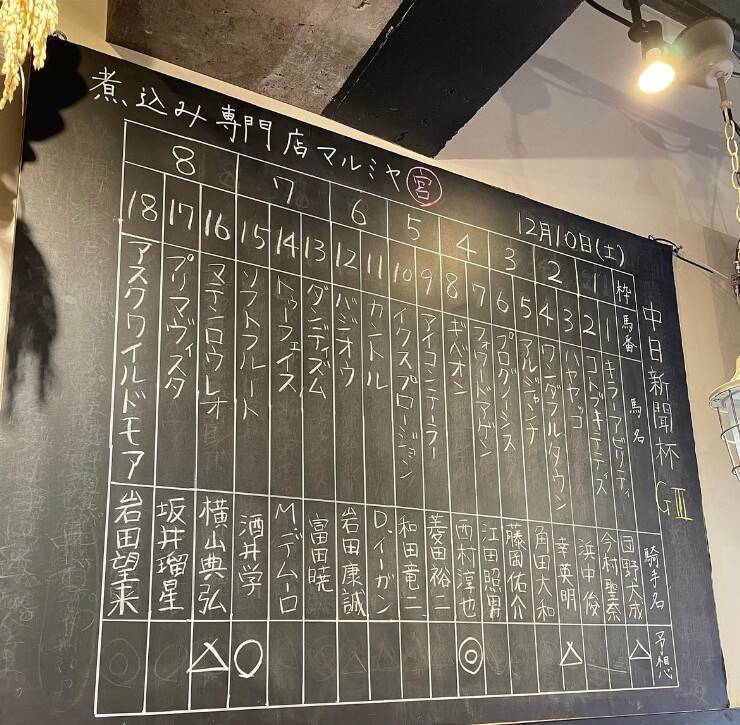 煮込み専門店マルミヤ 宮
12月10日(土)
中日新聞杯 GⅢ
枠 馬番 馬名 騎手名 予想
1 1 キラーアビリティ 団野大成 △
2 コトブキテティス 今村聖奈
2 3 ハヤヤッコ 浜中俊
4 ワンダフルタウン 幸英明 △
3 5 アルジャンナ 角田大和
6 プログノーシス 藤岡佑介
4 7 フォワードアゲン 江田照男
8 ギベオン 西村淳也 ◎
5 9 アイコンテーラー 菱田裕二
10 イクスプロージョン 和田竜二
6 11 カントル D.イーガン
12 バジオウ 岩田康誠
7 13 ダンディズム 富田暁
14 トゥーフェイス M.デムーロ
15 ソフトフルート 酒井学 ○
8 16 マテンロウレオ 横山典弘 △
17 プリマヴィスタ 坂井瑠星
18 アスクワイルドモア 岩田望来